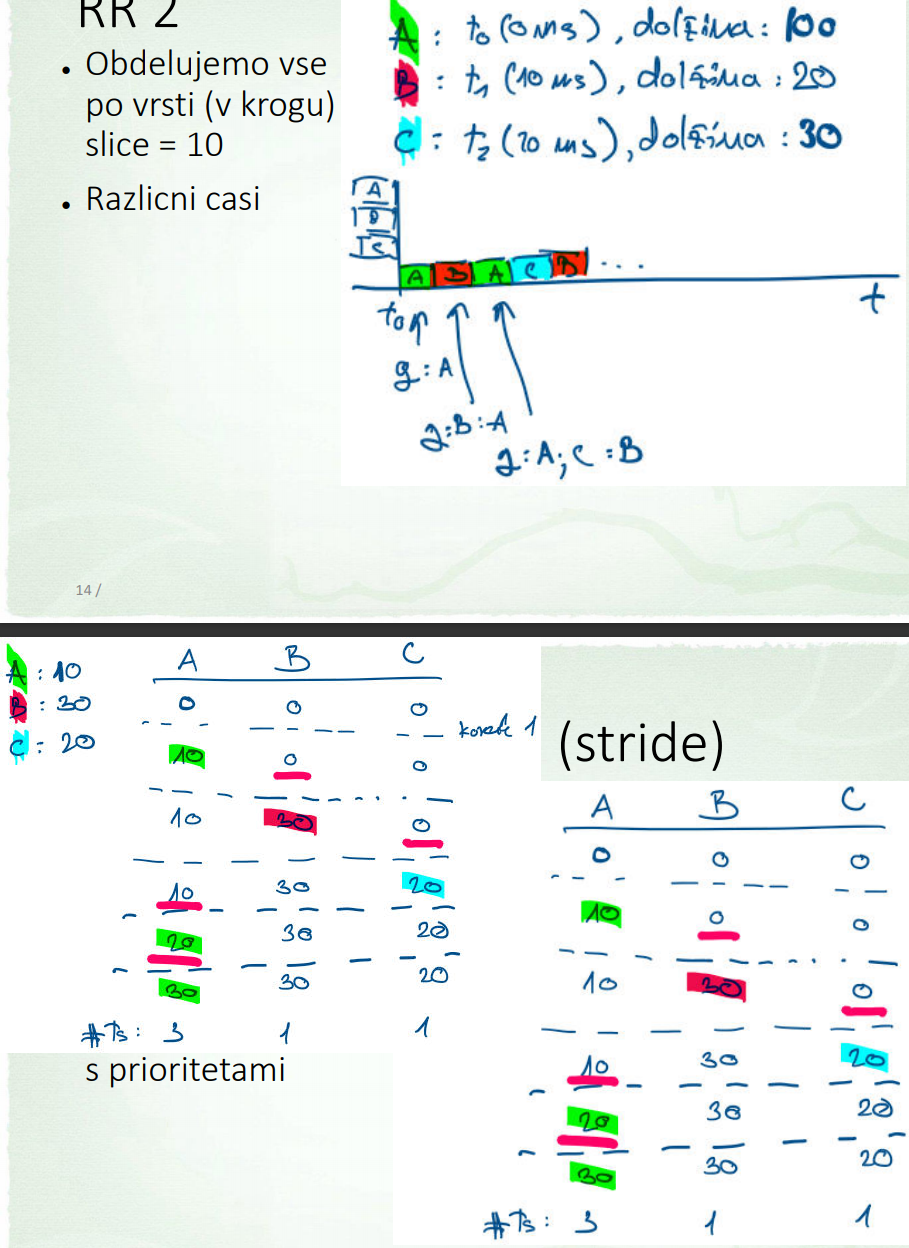 RR 2
• Obdelujemo vse
po vrsti (v krogu)
slice = 10
• Razlicni casi
A : t0 (0 ms), dolžina: 100
B : t1 (10 ms), dolžina : 20
C : t2 (20 ms), dolžina : 30
A
B
C
A B A C B ...
t0 t
q : A
q:B:A
q:A;C:B
14 /
A : 10
B : 30
C : 20
A B C
0 0 0
korak 1
10 0 0
10 30 0
10 30 20
20 30 20
30 30 20
#Ts : 3 1 1
s prioritetami
(stride)
A B C
0 0 0
10 0 0
10 30 0
10 30 20
20 30 20
30 30 20
#Ts : 3 1 1